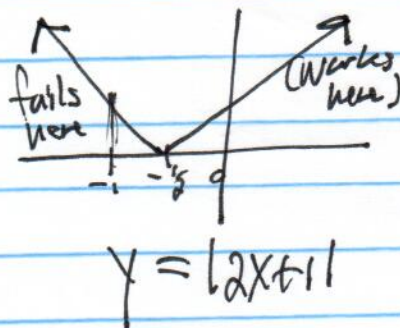 fails
here
(works
here)
-1
-1/2
0
y = |2x+1|